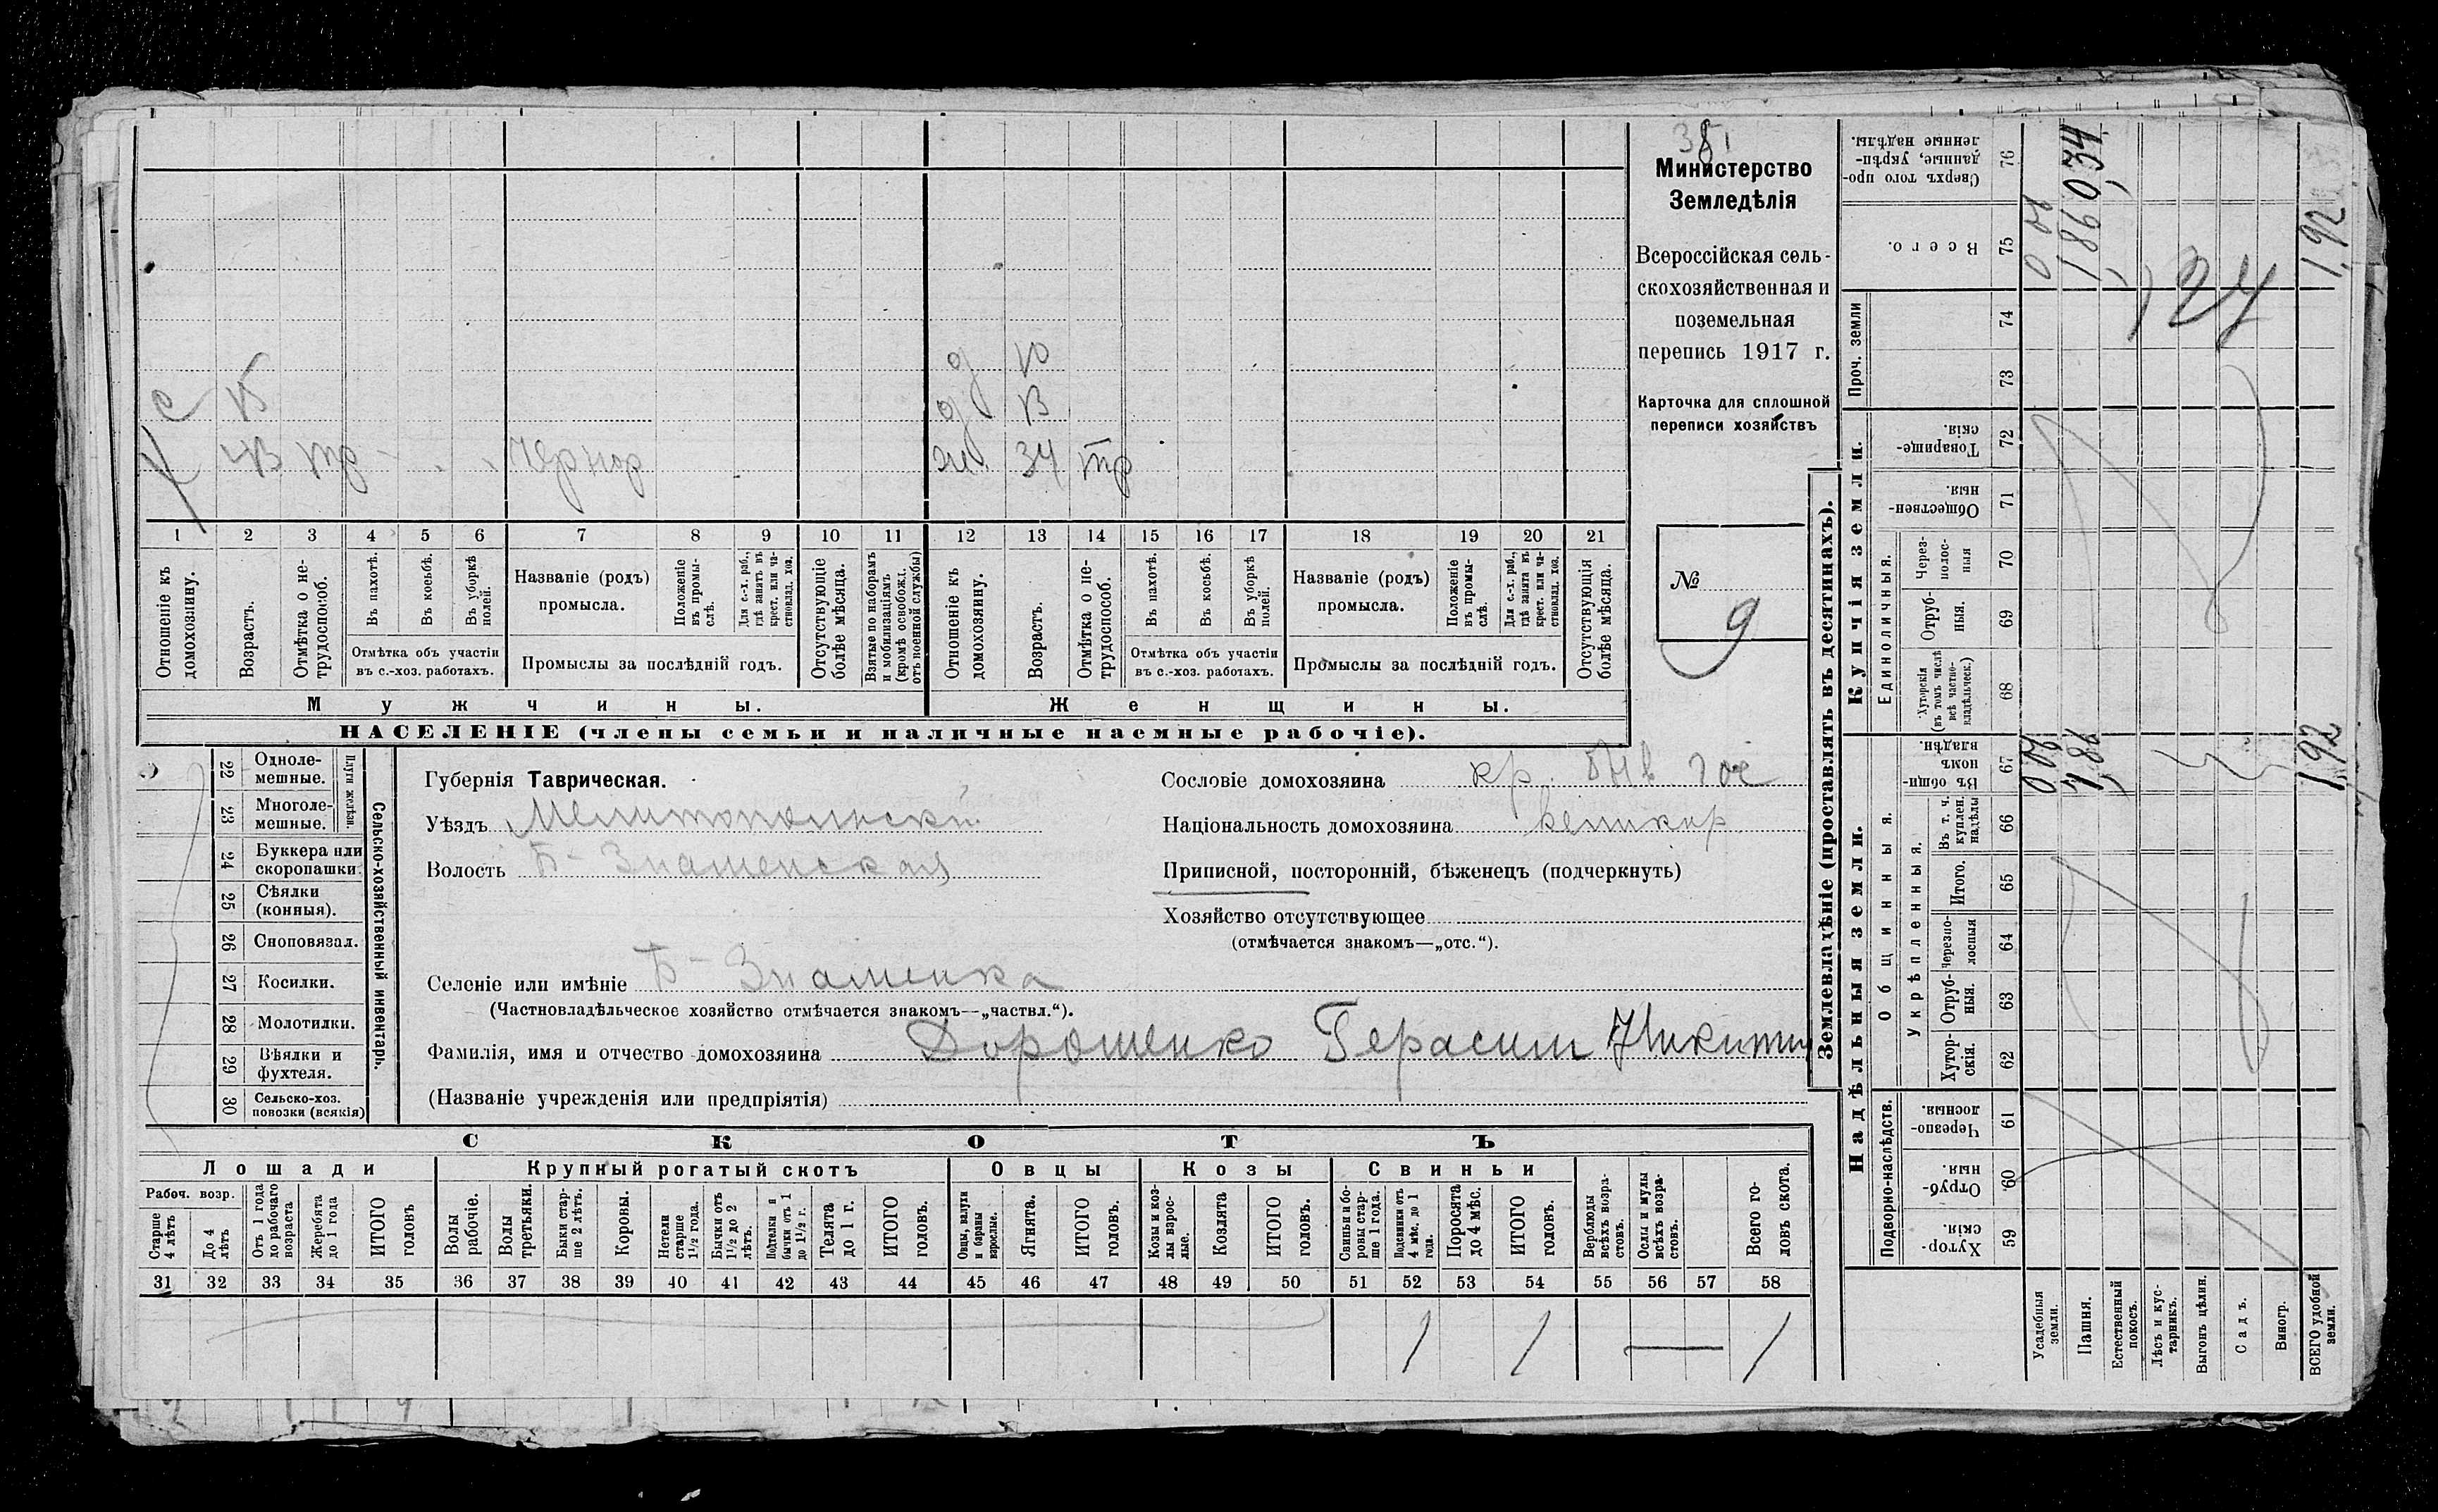 381
Министерство
Земледѣлія
Всероссійская сель-
скохозяйственная и
поземельная
перепись 1917 г.
Карточка для сплошной
переписи хозяйствъ
№
9
с
д 10
д
ж. 34 тр
1 2 3 4 5 6 7 8 9 10 11 12 13 14 15 16 17 18 19 20 21
Отношеніе къ домохозяину.
Возрастъ.
Отмѣтка о не-трудоспособ.
Въ пахотѣ.
Въ косьбѣ.
Въ уборкѣ полей.
Отмѣтка объ участіи
въ с.-хоз. работахъ.
Названіе (родъ)
промысла.
Положеніе въ промы-слѣ.
Для с.-х. раб., гдѣ занятъ въ крест. или ча-стновлад. хоз.
Промыслы за послѣдній годъ.
Отсутствующіе болѣе мѣсяца.
Взятые по наборамъ и мобилизаціямъ (кромѣ освобожд. отъ военной службы)
Отношеніе къ домохозяину.
Возрастъ.
Отмѣтка о не-трудоспособ.
Въ пахотѣ.
Въ косьбѣ.
Въ уборкѣ полей.
Отмѣтка объ участіи
въ с.-хоз. работахъ.
Названіе (родъ)
промысла.
Положеніе въ промы-слѣ.
Для с.-х. раб., гдѣ занята въ крест. или ча-стновлад. хоз.
Промыслы за послѣдній годъ.
Отсутствующія болѣе мѣсяца.
Мужчины.
Женщины.
НАСЕЛЕНІЕ (члены семьи и наличные наемные рабочіе).
22 Однолемешные.
23 Многолемешные.
Плуги желѣзн.
24 Буккера или скоропашки.
25 Сѣялки (конныя).
26 Сноповязал.
27 Косилки.
28 Молотилки.
29 Вѣялки и фухтеля.
30 Сельско-хоз. повозки (всякія)
Сельско-хозяйственный инвентарь.
Губернія Таврическая.
Уѣздъ Мелитопольскій
Волость Б-Знаменская
Селеніе или имѣніе Б-Знаменка
(Частновладѣльческое хозяйство отмѣчается знакомъ—„частвл.“).
Фамилія, имя и отчество домохозяина Дорошенко Герасим Никитин
(Названіе учрежденія или предпріятія)
Сословіе домохозяина кр. быв гос
Національность домохозяина
Приписной, посторонній, бѣженецъ (подчеркнуть)
Хозяйство отсутствующее
(отмѣчается знакомъ—„отс.“).
СКОТЪ
Лошади
Крупный рогатый скотъ
Овцы
Козы
Свиньи
Рабоч. возр.
Старше 4 лѣтъ
До 4 лѣтъ
Отъ 1 года до рабочаго возраста
Жеребята до 1 года
ИТОГО головъ
Волы рабочіе.
Волы третьяки.
Быки стар-ше 2 лѣтъ.
Коровы.
Нетели старше 1½ года.
Бычки отъ 1½ до 2 лѣтъ.
бычки отъ 1 до 1½ г.
Телята до 1 г.
ИТОГО головъ.
Овцы, валухи и бараны взрослые.
Ягнята.
ИТОГО головъ.
Козы и коз-лы взрос-лые.
Козлята
ИТОГО головъ.
Свиньи и бо-ровы стар-ше 1 года.
Подсвинки отъ 4 мѣс. до 1 года.
Поросята до 4 мѣс.
ИТОГО головъ.
Верблюды всѣхъ возра-стовъ.
Ослы и мулы всѣхъ возра-стовъ.
Всего го-ловъ скота.
31 32 33 34 35 36 37 38 39 40 41 42 43 44 45 46 47 48 49 50 51 52 53 54 55 56 57 58
1 1 — 1
Землевладѣніе (проставлять въ десятинахъ).
Надѣльныя земли.
Купчія земли.
Проч. земли
Подворно-наслѣдств.
Общинныя.
Укрѣпленныя.
Единоличныя.
59 Хутор-скія.
60 Отруб-ныя.
61 Черезпо-лосныя.
62 Хутор-скія.
63 Отруб-ныя.
64 Черезпо-лосныя
65 Итого.
66 Въ т. ч. куплен. надѣлы
67 Въ общин-номъ владѣн.
68 Хуторскія (въ томъ числѣ всѣ частно-владѣльческ.)
69 Отруб-ныя.
70 Через-полос-ныя
71 Обществен-ныя.
72 Товарище-скія.
73
74
75 Всего.
76 Сверхъ того про-данные, укрѣп-ленные надѣлы.
Усадебныя земли.
Пашня.
Естественный покосъ.
Лѣсъ и кус-тарникъ.
Выгонъ цѣлин.
Садъ.
Виногр.
ВСЕГО удобной земли.
0 06
1,86
1,92
0 06
1,86
0,34
1,92